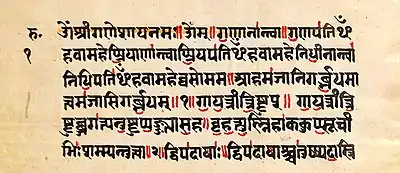 रु. ॐ श्रीगणेशाय नमः॥ ॐम्॥ गणानान्त्वा॥ गणपतिꣳ
१ हवामहे प्प्रियाणान्त्वा प्प्रियपतिꣳ हवामहे निधीनान्त्वा
निधिपतिꣳ हवामहे व्वसो मम॥ आहमजानि गर्ब्भधमा
त्त्वमजासि गर्ब्भधम्॥१॥ गायत्री त्रिष्टुप्॥ गायत्री त्रि
ष्टुब्जगत्यनुष्टुप्पङ्क्त्या सह॥ बृहत्युष्णिहा ककुप्प्सूची
भिः शम्म्यन्तु त्वा॥२॥ द्विपदायाः॥ द्विपदा याश्चतुष्पदास्त्रि